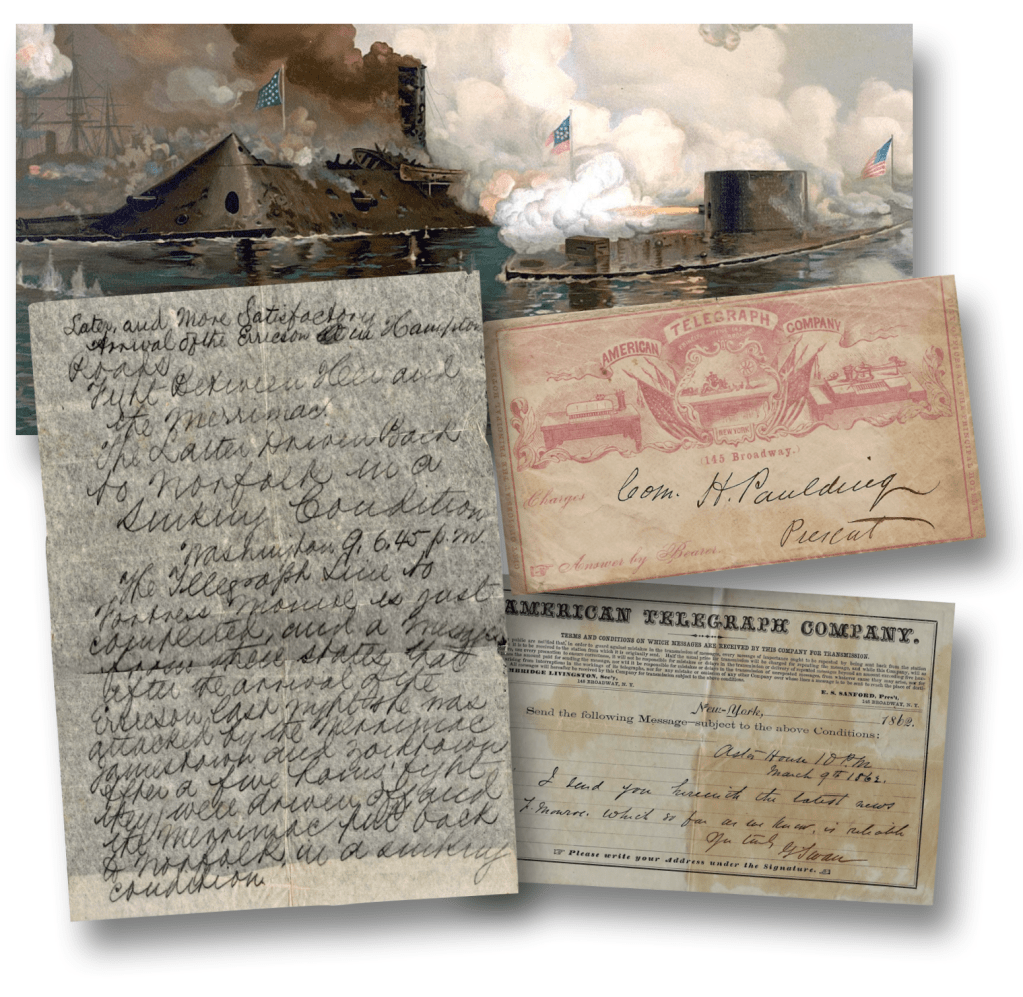 Later, and More Satisfactory
Arrival of the Erricson in Hampton
Roads
Fight Between Her and
the Merrimac.
The Latter Driven Back
to Norfolk in a
Sinking Condition
Washington 9, 6.45 p.m.
The Tellegraph Line to
Fortress Monroe is just
completed, and a
from there states that
after the arrival of the
Erricson last night she was
attacked by the Merrimac
Jamestown and Yorktown
after a five hours' fight
they were driven off and
the Merrimac put back
to Norfolk in a sinking
condition.
AMERICAN TELEGRAPH COMPANY
NEW YORK
(145 Broadway.)
Charges
Com. H. Paulding
Present
Answer by Bearer.
AMERICAN TELEGRAPH COMPANY.
TERMS AND CONDITIONS ON WHICH MESSAGES ARE RECEIVED BY THIS COMPANY FOR TRANSMISSION.
MBRIDGE LIVINGSTON, Sec'y,
145 BROADWAY, N. Y.
E. S. SANFORD, Pres't,
145 BROADWAY, N. Y.
New-York, 1862.
Send the following Message subject to the above Conditions:
Astor House 10 P.M
March 9th 1862.
I send you herewith the latest news
F. Monroe. Which so far as we know, is reliable
Swan
Please write your Address under the Signature.